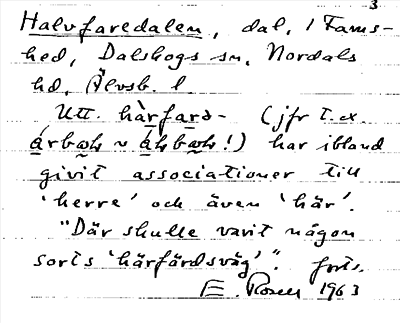 3
Halvfaredalen, dal, i Farms-
hed, Dalskogs sn, Nordals
hd, Älvsb. l.
Utt. hàrfarə- (jfr t.ex.
har ibland
givit associationer till
'herre' och även 'här'.
"Där skulle varit någon
sorts 'härfärdsväg'". forts.
E. Rosell 1963